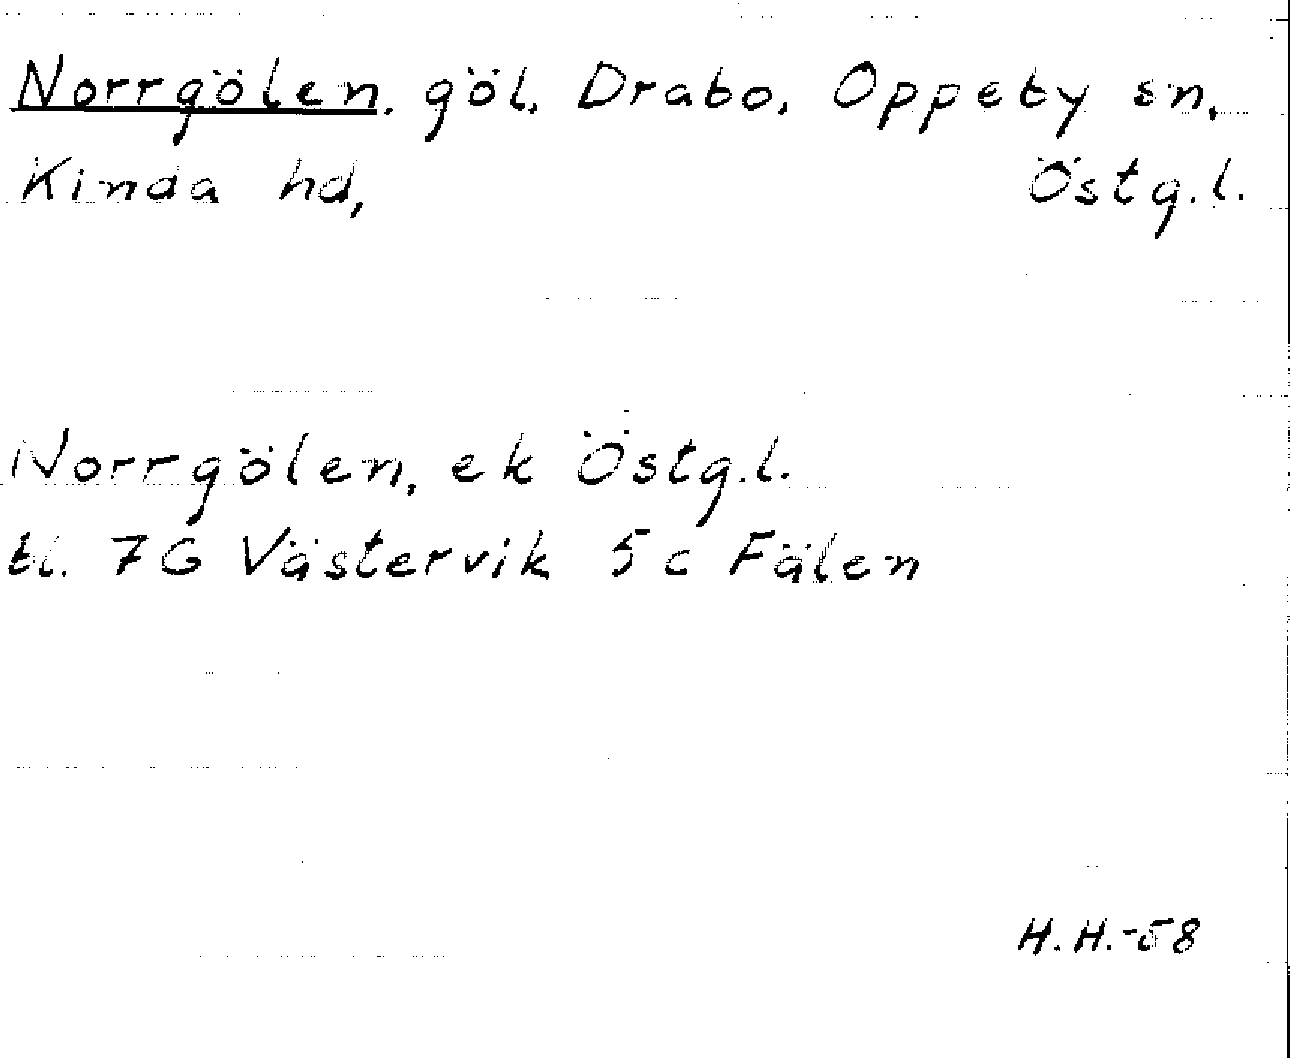 Norrgölen. göl, Drabo, Oppeby sn,
Kinda hd, Östg.l.
Norrgölen, ek Östg.l.
tl. 7G Västervik 5 c Fälen
H.H.-58